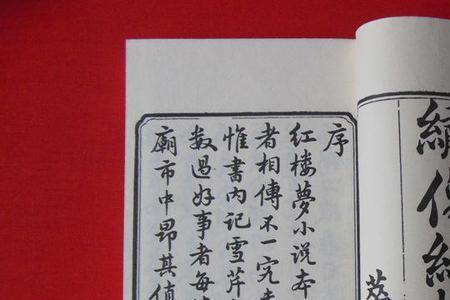 序
红楼夢小说本
者相傳不一究
惟書内记雪芹
数過好事者每
廟市中昂其值